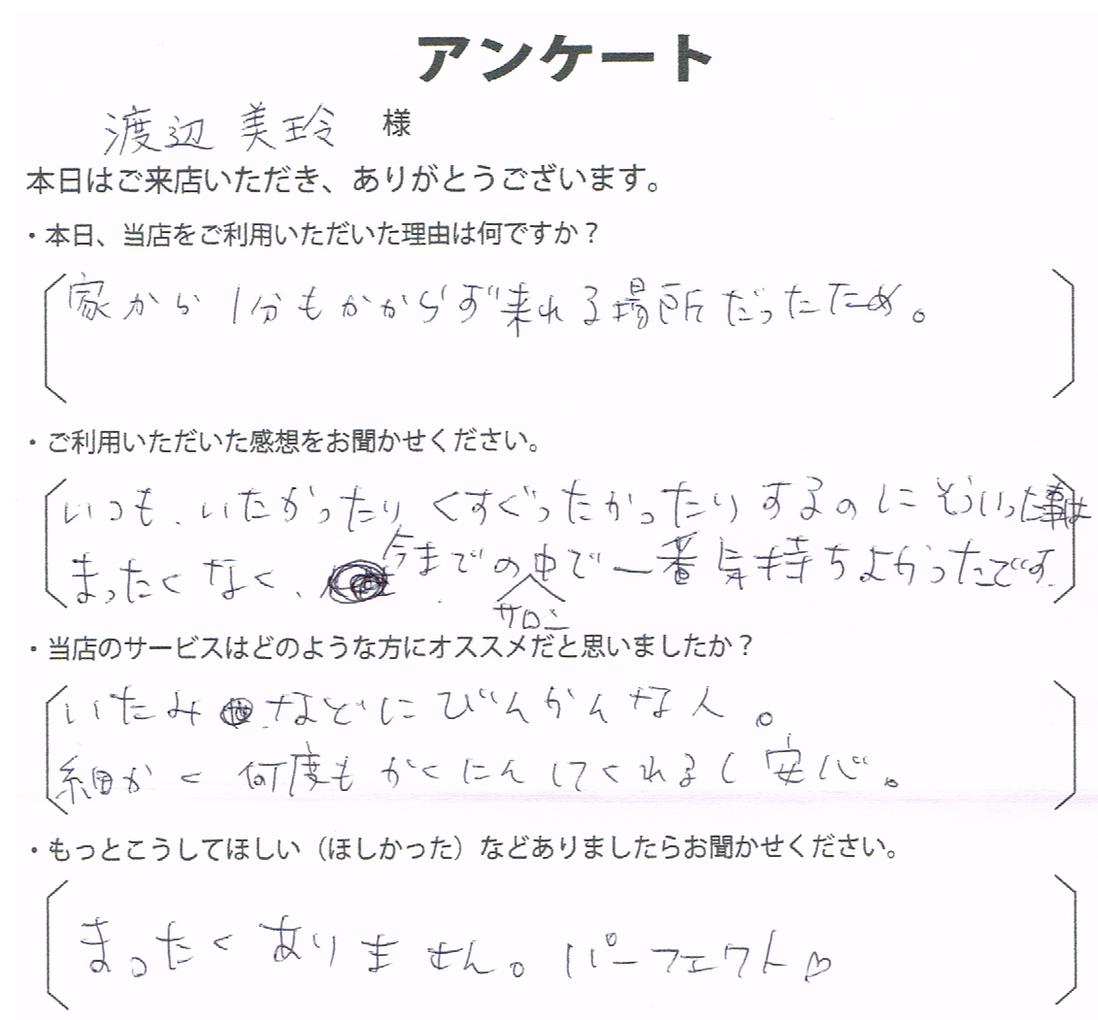 アンケート
渡辺 美玲 様
本日はご来店いただき、ありがとうございます。
・本日、当店をご利用いただいた理由は何ですか？
家から1分もかからず来れる場所だったため。
・ご利用いただいた感想をお聞かせください。
いつも、いたかったりくすぐったかったりするのにそういった事は
まったくなく、今までの中で一番気持ちよかったです。
サロン
・当店のサービスはどのような方にオススメだと思いましたか？
いたみなどにびんかんな人。
細かく何度もかくにんしてくれるし安心。
・もっとこうしてほしい（ほしかった）などありましたらお聞かせください。
まったくありません。パーフェクト♡